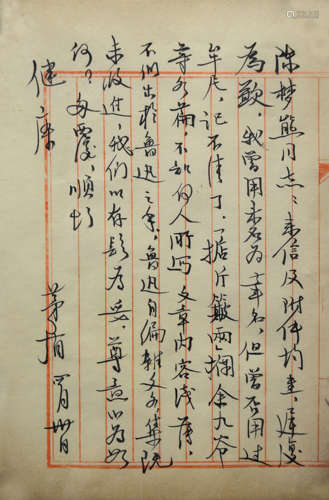 陈梦熊同志：来信及附件均悉，迟复
为歉，我曾用未名为笔名，但曾否用过
牟尼，记不清了，据斤簸两栏余九爷
等各篇，不知何人所写，文章内容浅薄，
不似出于鲁迅之手，鲁迅自编杂文各集既
未收进，我们以存疑为妥，尊意以为如
何？匆覆，顺颂
健康
茅盾 月 日